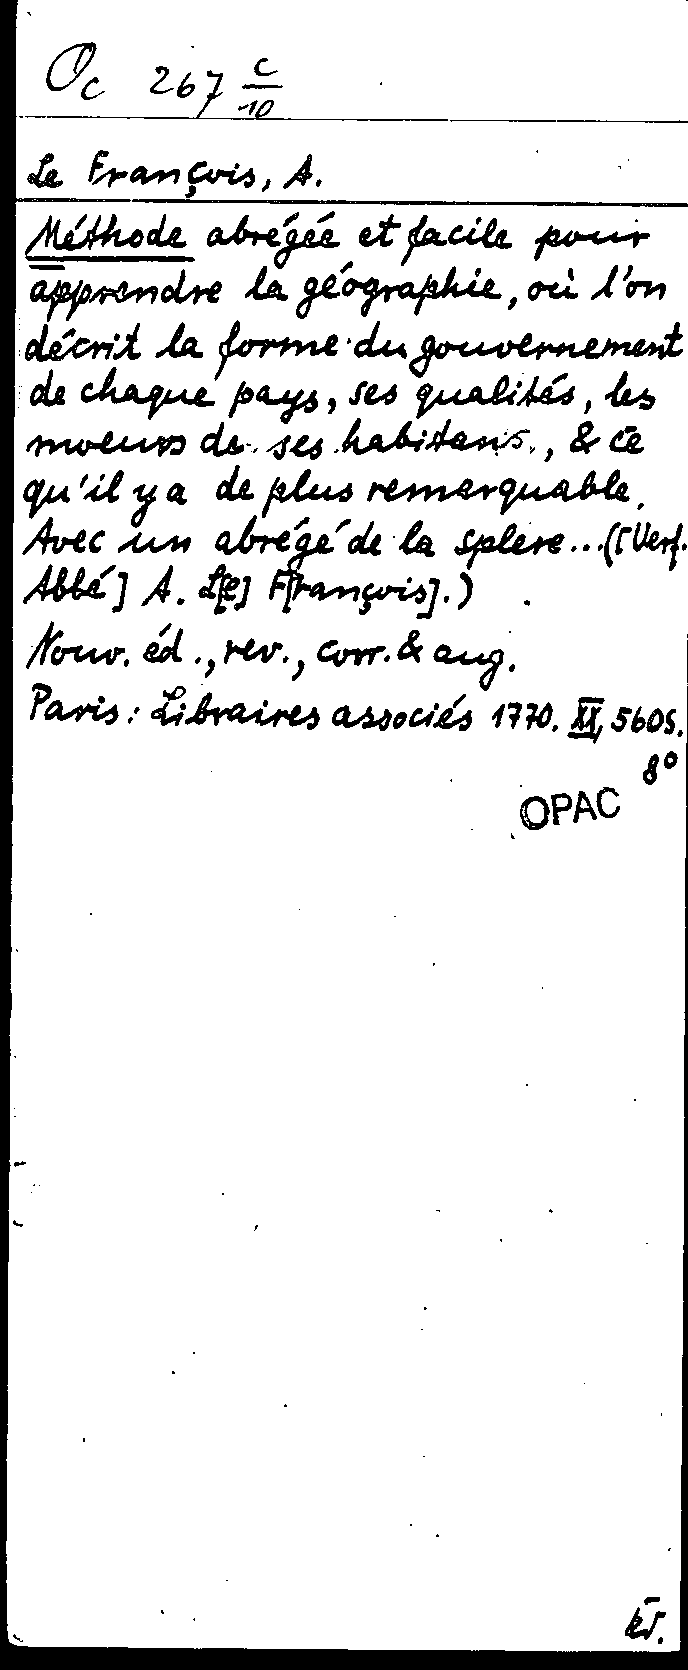 Oc 267 c/10
Le François, A.
Méthode abrégée et facile pour
apprendre la géographie, où l'on
décrit la forme du gouvernement
de chaque pays, ses qualités, les
moeurs de ses habitans, & ce
qu'il y a de plus remarquable.
Avec un abrégé de la splere...([Verf.
Abbé] A. L[e] F[rançois].)
Nouv. éd., rev., corr. & aug.
Paris: Libraires associés 1770. XX, 560 S.
8°
OPAC